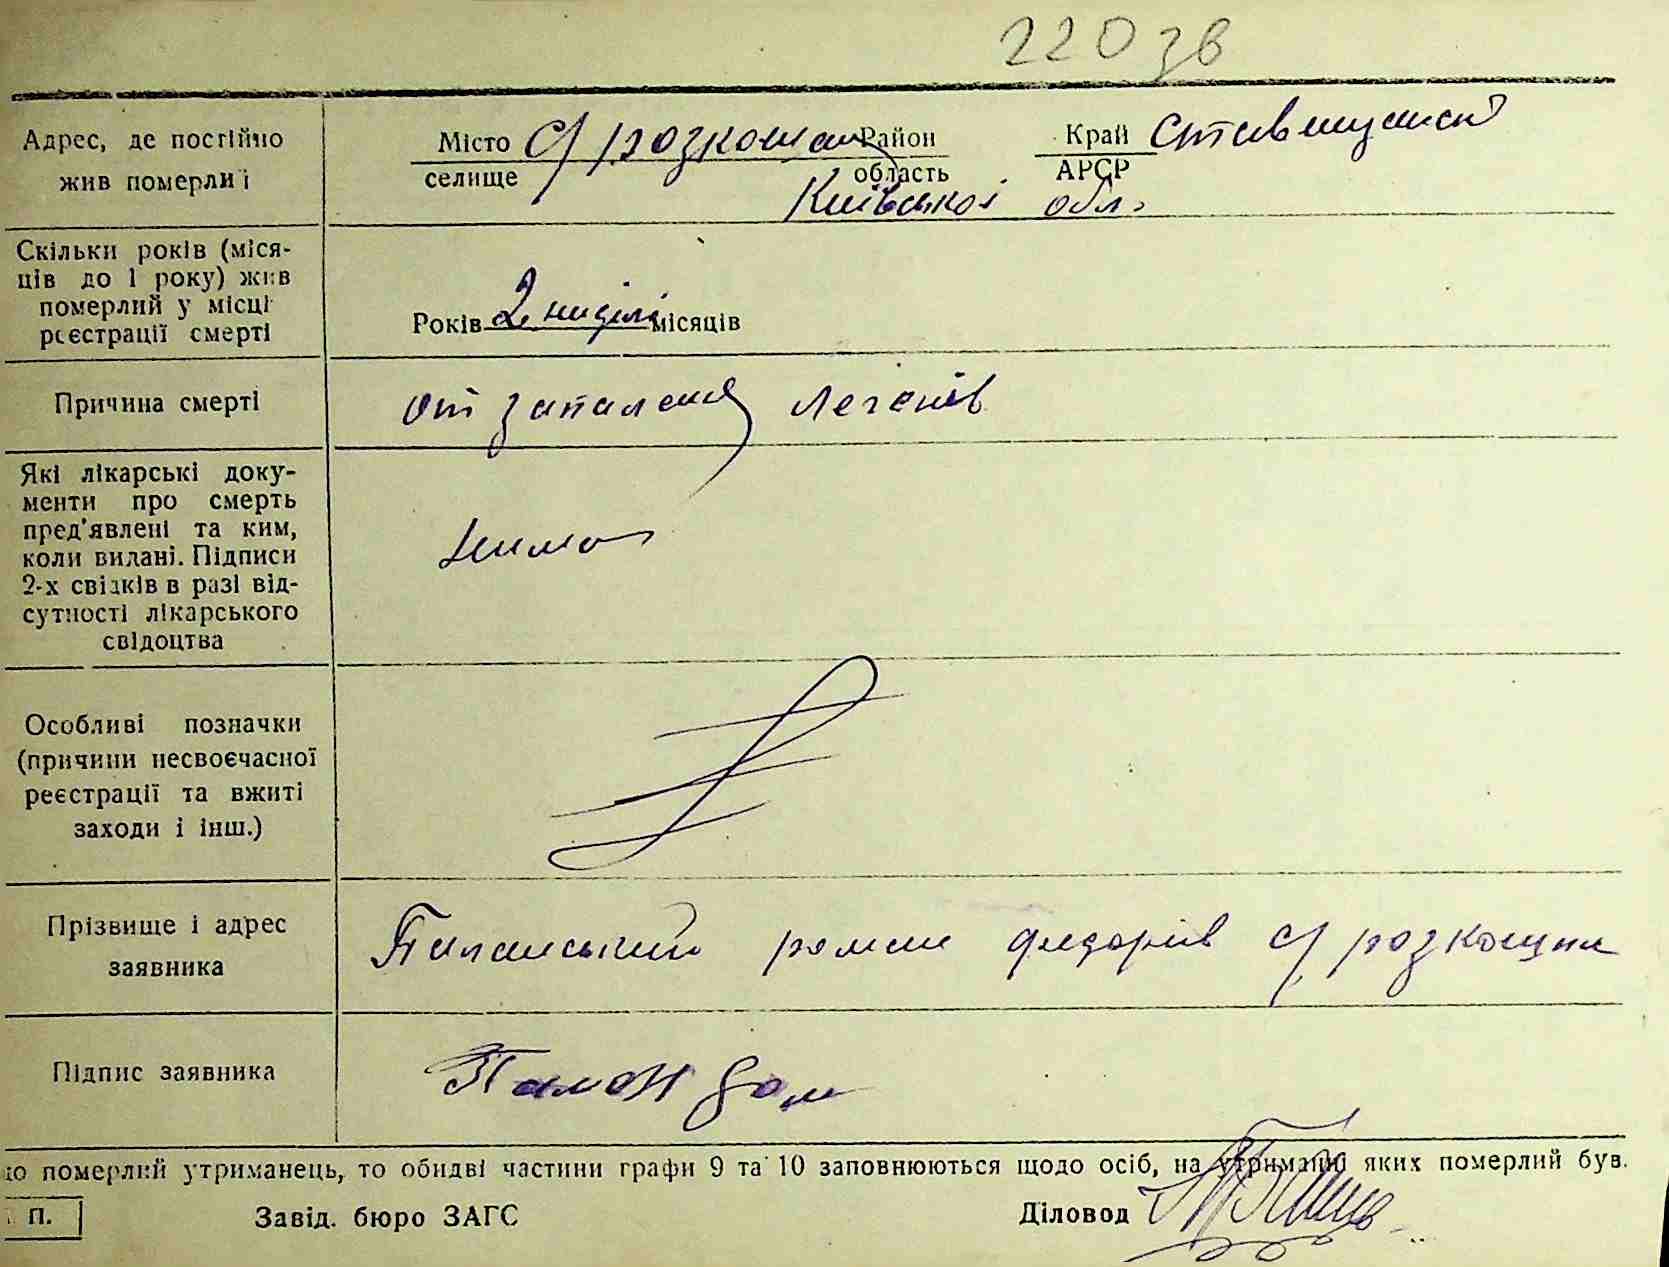 220 зв
Адрес, де постійно
жив померлиї
Місто с/ розкошна Район Край Ставищанськ
селище область АРСР
Київської обл.
Скільки років (міся-
ців до 1 року) жив
померлий у місці
реєстрації смерті
Років 2 ниділі місяців
Причина смерті
от запаленя легенів
Які лікарські доку-
менти про смерть
пред'явлені та ким,
коли видані. Підписи
2-х свідків в разі від-
сутності лікарського
свідоцтва
нима
Особливі позначки
(причини несвоєчасної
реєстрації та вжиті
заходи і інш.)
Прізвище і адрес
заявника
роман федорів с/ розкошна
Підпис заявника
що померлий утриманець, то обидві частини графи 9 та 10 заповнюються щодо осіб, на утриманні яких померлий був.
П.
Завід. бюро ЗАГС
Діловод